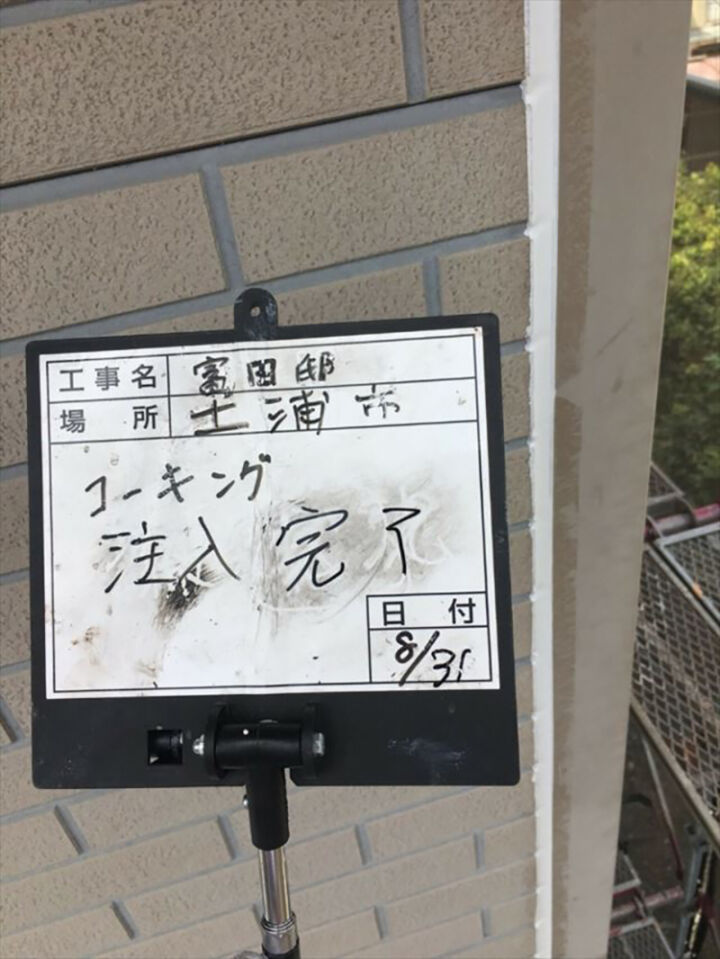 工事名 富田邸
場所 土浦市
コーキング
注入完了
日付
8/31